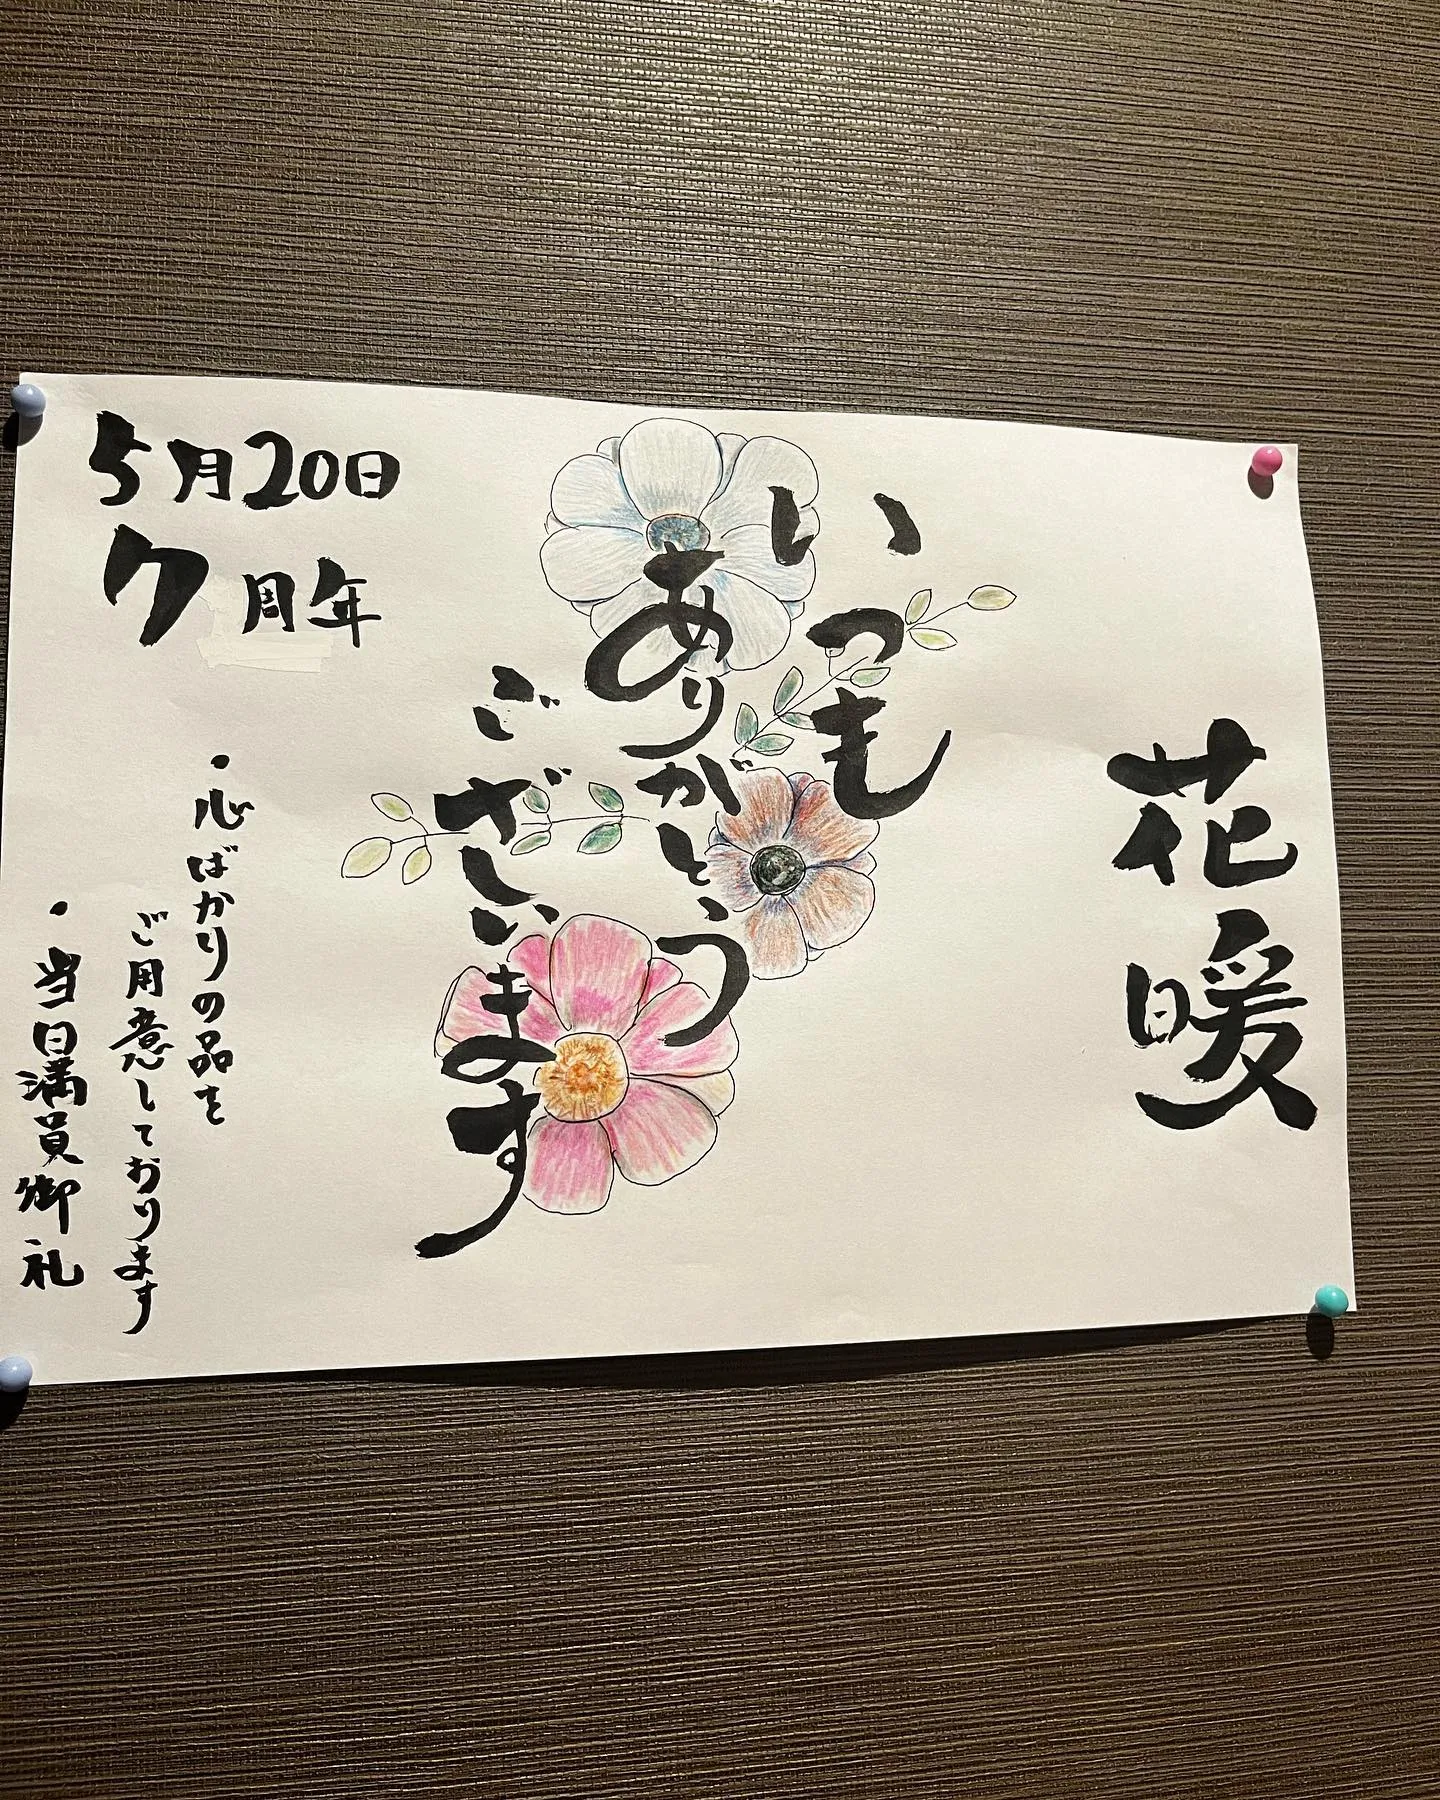 花暖
いつも
ありがとう
ございます
5月20日
7周年
・心ばかりの品を
ご用意しております
・当日満員御礼